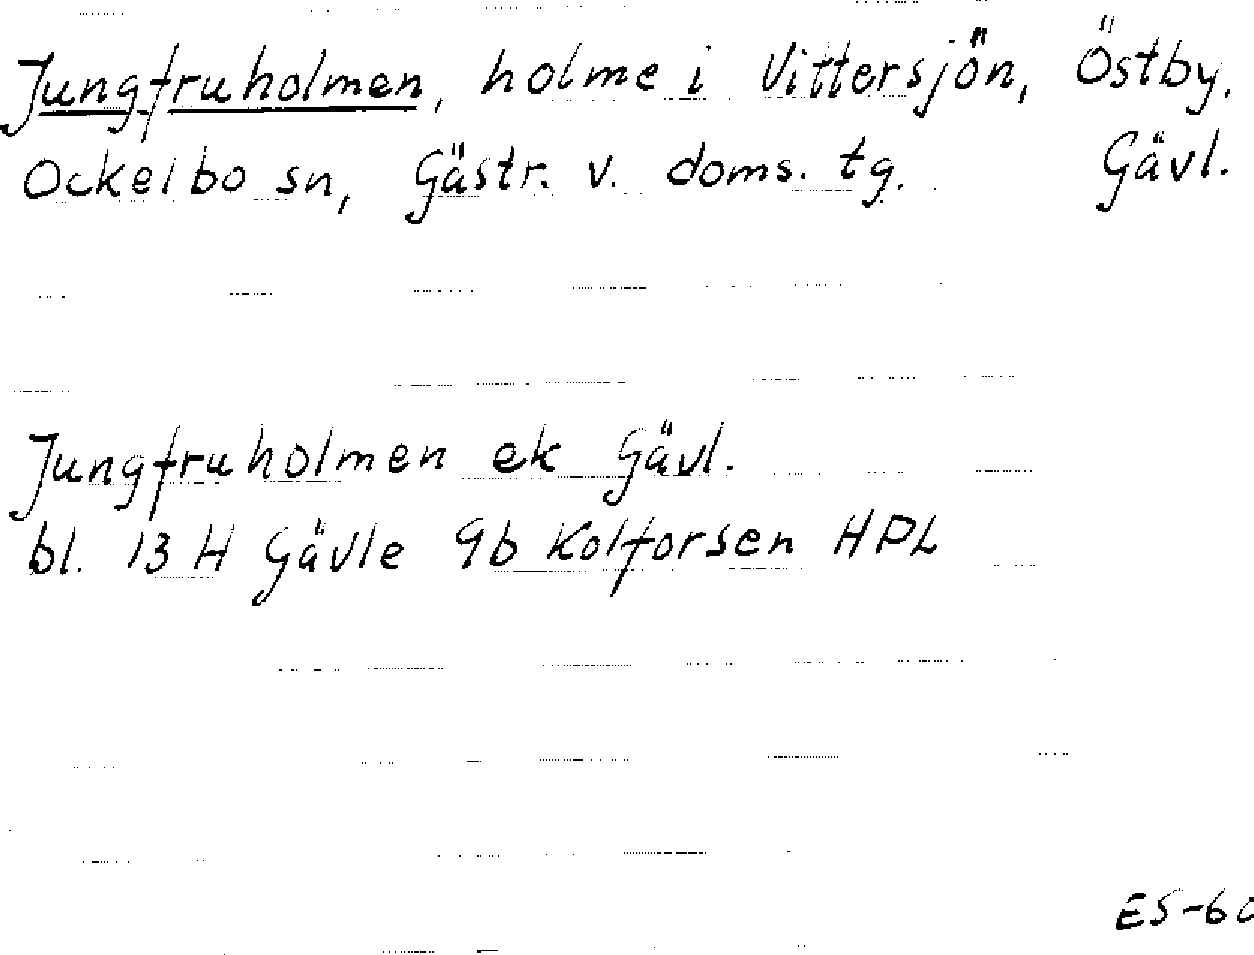 Jungfruholmen, holme i Vittersjön, Östby.
Ockelbo sn, Gästr. v. doms. tg. Gävl.
Jungfruholmen ek Gävl.
bl. 13 H Gävle 9b Kolforsen HPL